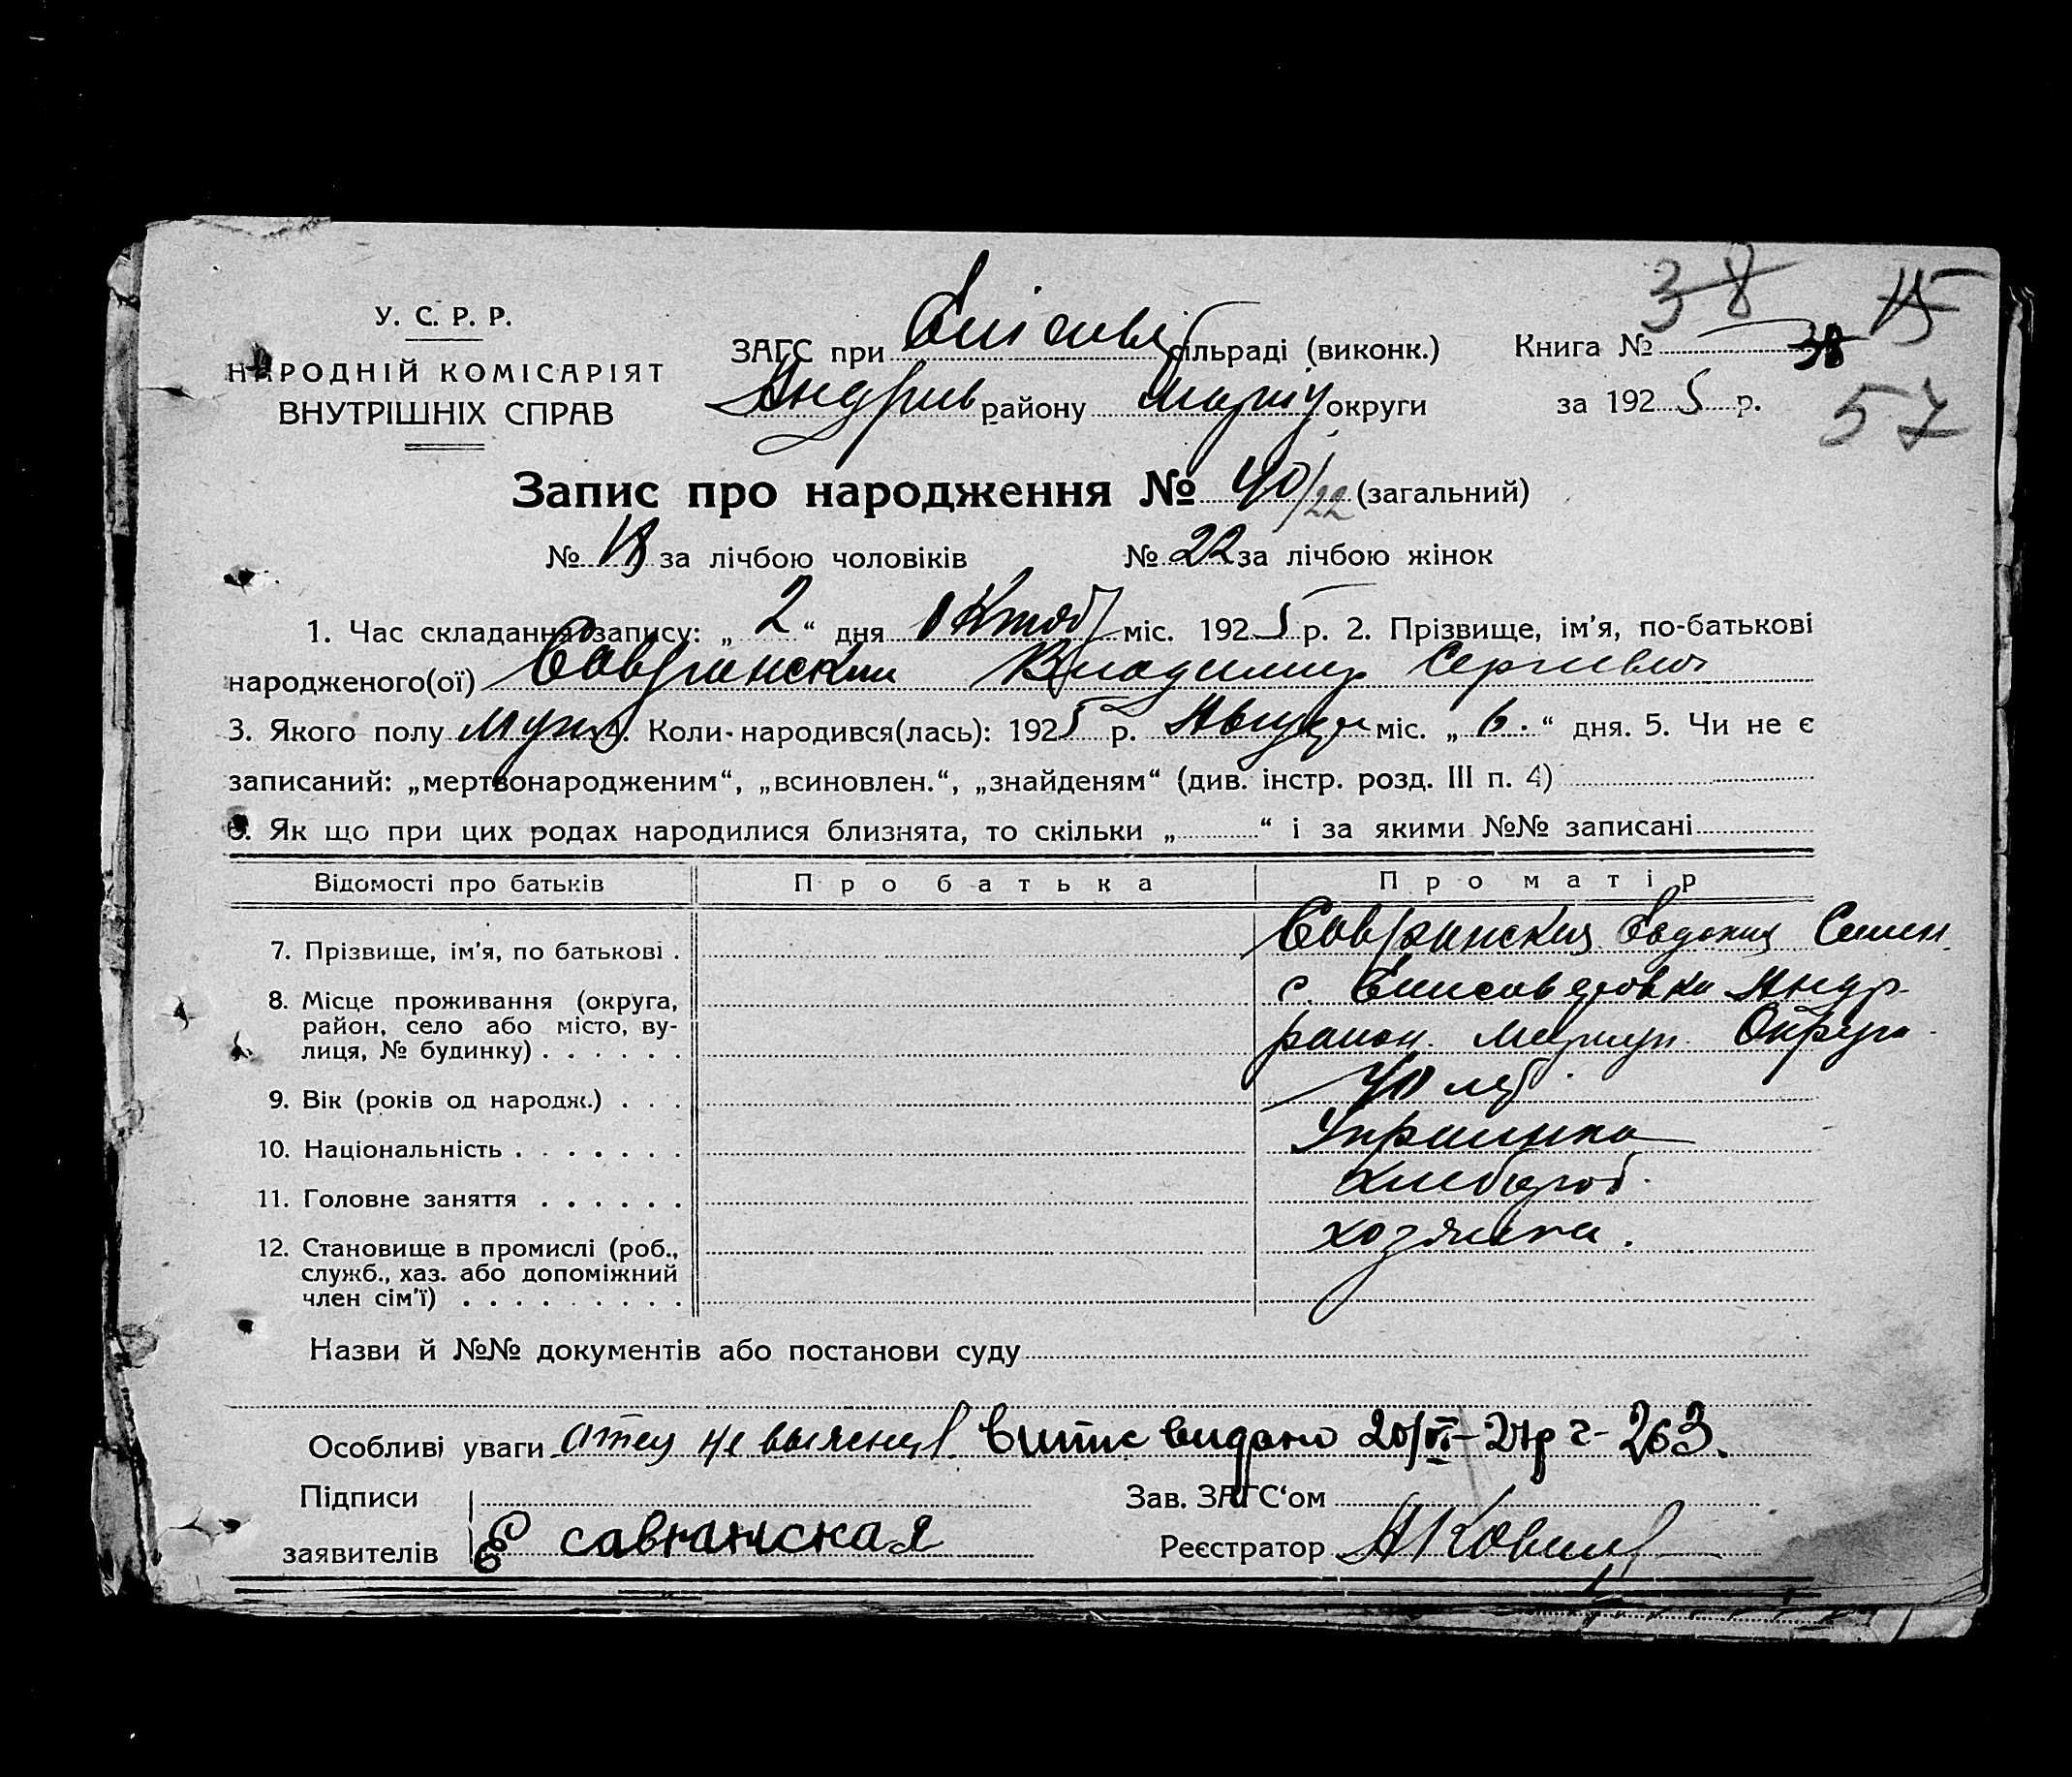 38 15
У. С. Р. Р.
НАРОДНІЙ КОМІСАРІЯТ
ВНУТРІШНІХ СПРАВ
ЗАГС при сільраді (виконк.) Книга № 38
Андрив району Марiу округи за 1925 р. 57
Запис про народження № 40/22 (загальний)
№ 18 за лічбою чоловіків № 22 за лічбою жінок
1. Час складання запису: „ 2 “ дня Октяб міс. 1925 р. 2. Прізвище, ім’я, по-батькові
народженого(ої) Савранский Владимир Сергиевич
3. Якого полу муж 4. Коли народився(лась): 1925 р. Август міс. „ 6. “ дня. 5. Чи не є
записаний: „мертвонародженим“, „всиновлен.“, „знайденям“ (див. інстр. розд. III п. 4)
6. Як що при цих родах народилися близнята, то скільки „ “ і за якими №№ записані
Відомості про батьків Про батька Про матір
7. Прізвище, ім’я, по батькові . Савранская Евдокия Семен.
8. Місце проживання (округа, с. Елисаведовка Андр.
район, село або місто, ву-
лиця, № будинку) . . . . . . район. Мариуп. Округа
9. Вік (років од народж.) . . . 40 лет.
10. Національність . . . . . . . Украинка
11. Головне заняття . . . . . . хлебороб.
12. Становище в промислі (роб., хозяйка.
служб., хаз. або допоміжний
член сім’ї) . . . . . . . . .
Назви й №№ документів або постанови суду
Особливі уваги отец не выяснен видано 20/VI- 263.
Підписи Зав. ЗАГС‘ом
заявителів Е Савранская Реєстратор